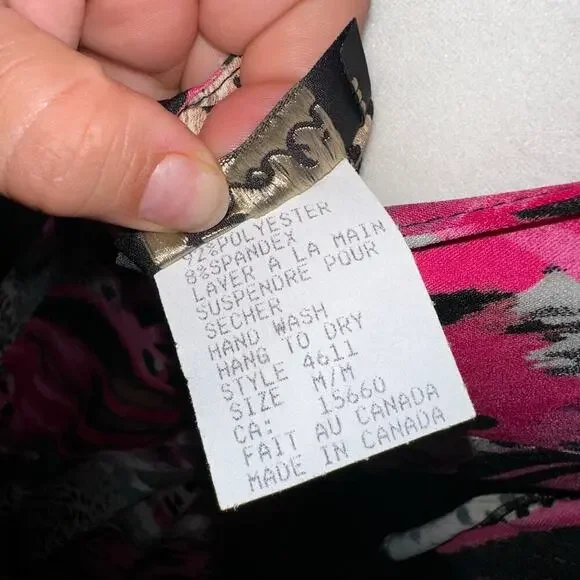 92%POLYESTER
8%SPANDEX
LAVER A LA MAIN
SUSPENDRE POUR
SECHER
HAND WASH
HANG TO DRY
STYLE 4611
SIZE M/M
CA: 15660
FAIT AU CANADA
MADE IN CANADA